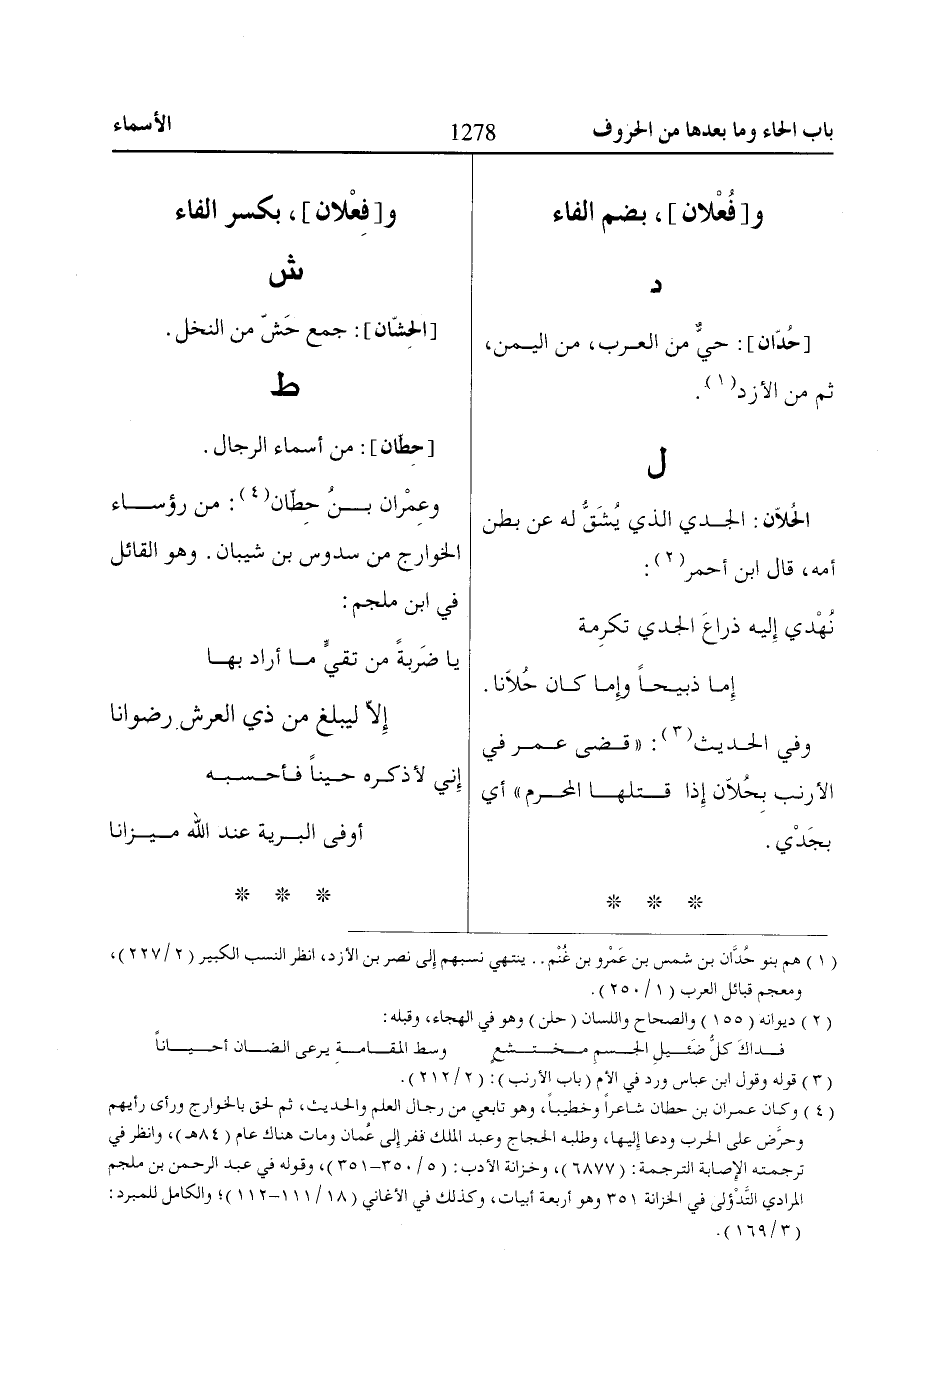 باب الحاء وما بعدها من الحروف 1278 الأسماء
و[ فُعْلان ] ، بضم الفاء
د
[ حُدّان ] : حيٌّ من العرب، من اليمن،
ثم من الأزد(١).
ل
الحُلاّن : الجدي الذي يُشَقُّ له عن بطن
أمه، قال ابن أحمر(٢) :
نُهْدي إليه ذراعَ الجدي تكرِمة
إِما ذبيحاً وإِما كان حُلاّنا .
وفي الحديث(٣) : « قضى عمر في
الأرنب بحُلاّن إِذا قتلها المحرم » أي
بجَدْي .
* * *
و[ فِعْلان ] ، بكسر الفاء
ش
[ الحِشّان ] : جمع حَشّ من النخل .
ط
[ حِطّان ] : من أسماء الرجال .
وعِمْران بنُ حِطّان(٤) : من رؤساء
الخوارج من سدوس بن شيبان . وهو القائل
في ابن ملجم :
يا ضَربةً من تقيٍّ ما أراد بها
إِلاّ ليبلغ من ذي العرش رضوانا
إِني لأذكره حيناً فأحسبه
أوفى البرية عند الله ميزانا
* * *
(١) هم بنو حُدَّان بن شمس بن عَمْرو بن غُنْم .. ينتهي نسبهم إلى نصر بن الأزد، انظر النسب الكبير (٢/٢٢٧)،
ومعجم قبائل العرب (١/٢٥٠).
(٢) ديوانه (١٥٥) والصحاح واللسان (حلن) وهو في الهجاء، وقبله :
فداكَ كلُّ ضَئيلِ الجسمِ مختشعٍ وسط المقامةِ يرعى الضان أحياناً
(٣) قوله وقول ابن عباس ورد في الأم (باب الأرنب) : (٢/٢١٢).
(٤) وكان عمران بن حطان شاعراً وخطيباً، وهو تابعي من رجال العلم والحديث، ثم لحق بالخوارج ورأى رأيهم
وحرَّض على الحرب ودعا إليها، وطلبه الحجاج وعبد الملك ففر إلى عُمان ومات هناك عام (٨٤هـ)، وانظر في
ترجمته الإصابة الترجمة : (٦٨٧٧)، وخزانة الأدب : (٥/٣٥٠-٣٥١)، وقوله في عبد الرحمن بن ملجم
المرادي التَّدْؤلى في الخزانة ٣٥١ وهو أربعة أبيات، وكذلك في الأغاني (١٨/١١١-١١٢)؛ والكامل للمبرد :
(٣/١٦٩).